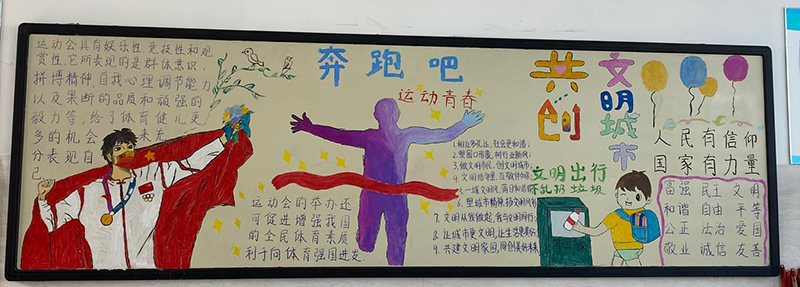 运动会具有娱乐性,竞技性和观
赏性,它所表现的是群体意识,
拼搏精神,自我心理调节能力
以及果断的品质和顽强的
毅力等,给了体育健儿更
多的机会 来充
分表现自
己
奔跑吧
运动青春
运动会的举办还
可促进增强我国
的全民体育素质
利于向体育强国进发
共创
文明城市
1.相互多礼让,社会更和谐;
3.做文明市民,创文明城市.
7.文明从我做起,
8.让城市更文明,让生活更美好
9.共建文明家园,同创美好未来
文明出行
不乱扔垃圾
人民有信仰
国家有力量
富强 民主 文明
和谐 自由 平等
公正 法治 爱国
敬业 诚信 友善